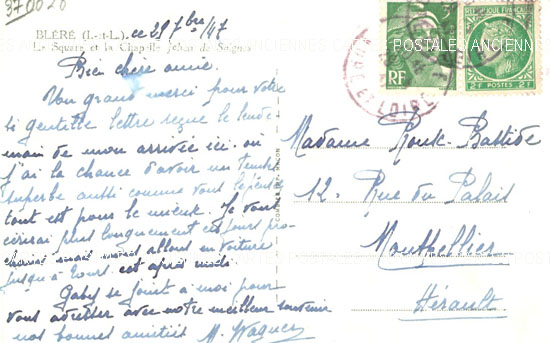 370020
BLÉRÉ (I.-et-L.)
ce 29 7bre/47
Le Square et la Chapelle Jehan de Seigne
Bien chère amie.
Un grand merci pour votre
si gentille lettre reçue le lende-
main de mon arrivée ici. où
j'ai la chance d'avoir un temps
superbe aussi comme vous
tout est pour le mieux. Je vous
écrirai plus longuement ces jours pro-
chains mais nous allons en voiture
jusqu'à Tours cet après midi
Gaby se joint à moi pour
vous adresser avec notre meilleur souvenir
nos bonnes amitiés M. Wagner
Madame Rouk-Battide
12. Rue du Palais
Montpellier
Hérault
RF
REPUBLIQUE FRANCAISE
2F POSTES 2F
INDRE ET LOIRE
POSTALES ANCIENNES